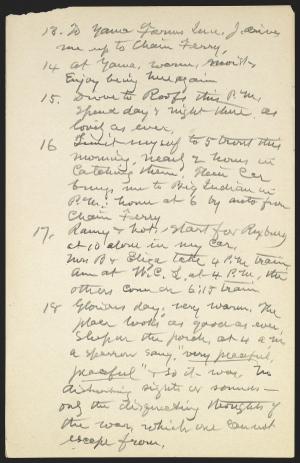 13. To Yama Farms Inn, J. drives
me up to Chain Ferry,
14 at Yama, warm, moist
Enjoy being here again
15. Drove to Roof, this P.M.
Spend day & night there, as
lovely as ever,
16 Limit myself to 5 trout this
morning, nearly 2 hours in
catching them, Their Car
brings me to Big Indian in
P.M.; home at 6 by auto from
Chain Ferry
17. Rainy & hot, start for Roxbury
at 10 alone in my car,
Mrs B & Eliza take 4 P.M. train
Am at W.C.L. at 4 P.M., the
others come on 6:15 train
18 Glorious day, very warm. The
place looks as good as ever,
Sleep on the porch, at 4 a.m.
a sparrow sang, "very peaceful,
peaceful" & so it was. No
disturbing sights or sounds —
only the disquieting thoughts of
the war, which one cannot
escape from.